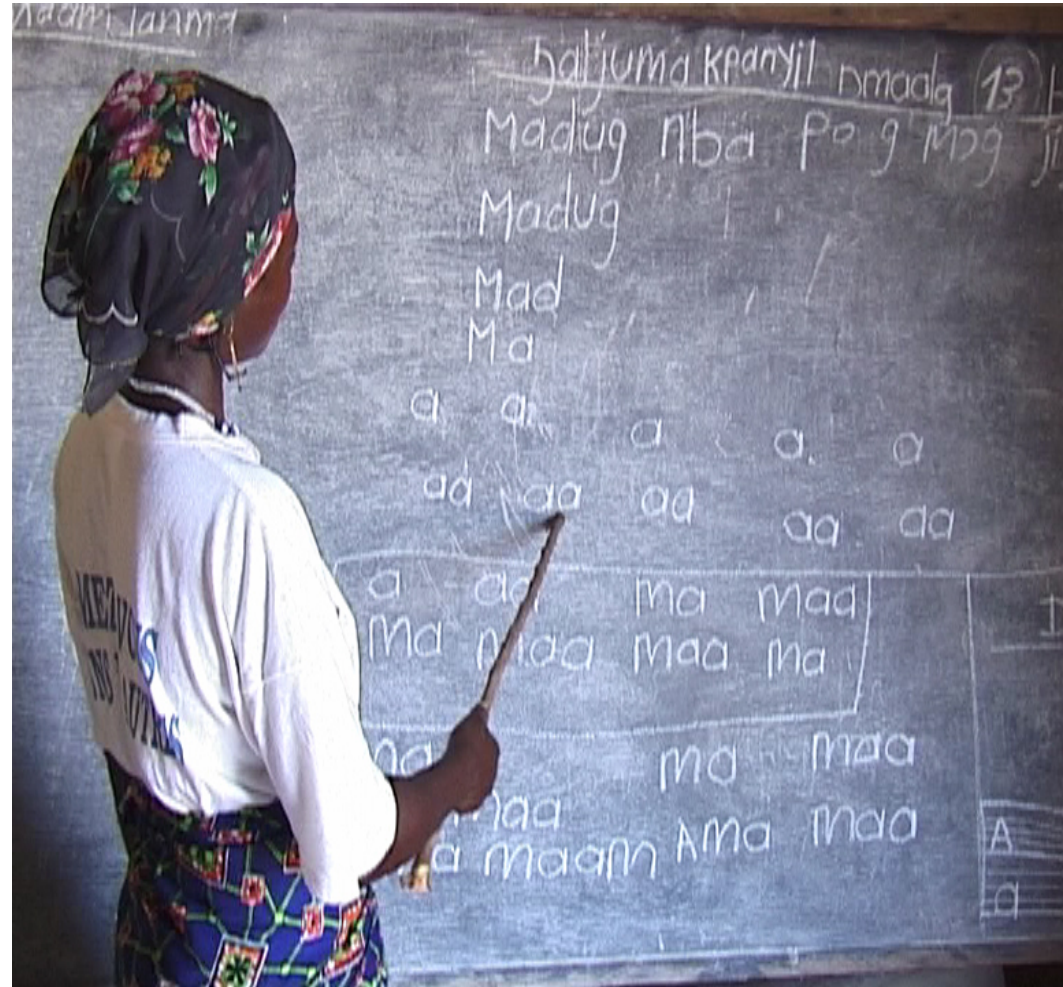 maam janma
ŋatjuma kpanyil nmaalg 13
Madug nba po g mɔg ji
Madug
Mad
Ma
a a a a a
aa aa aa aa aa
a aa ma maa
ma maa maa ma
ma maa
maa
a maam Ama maa
A
a